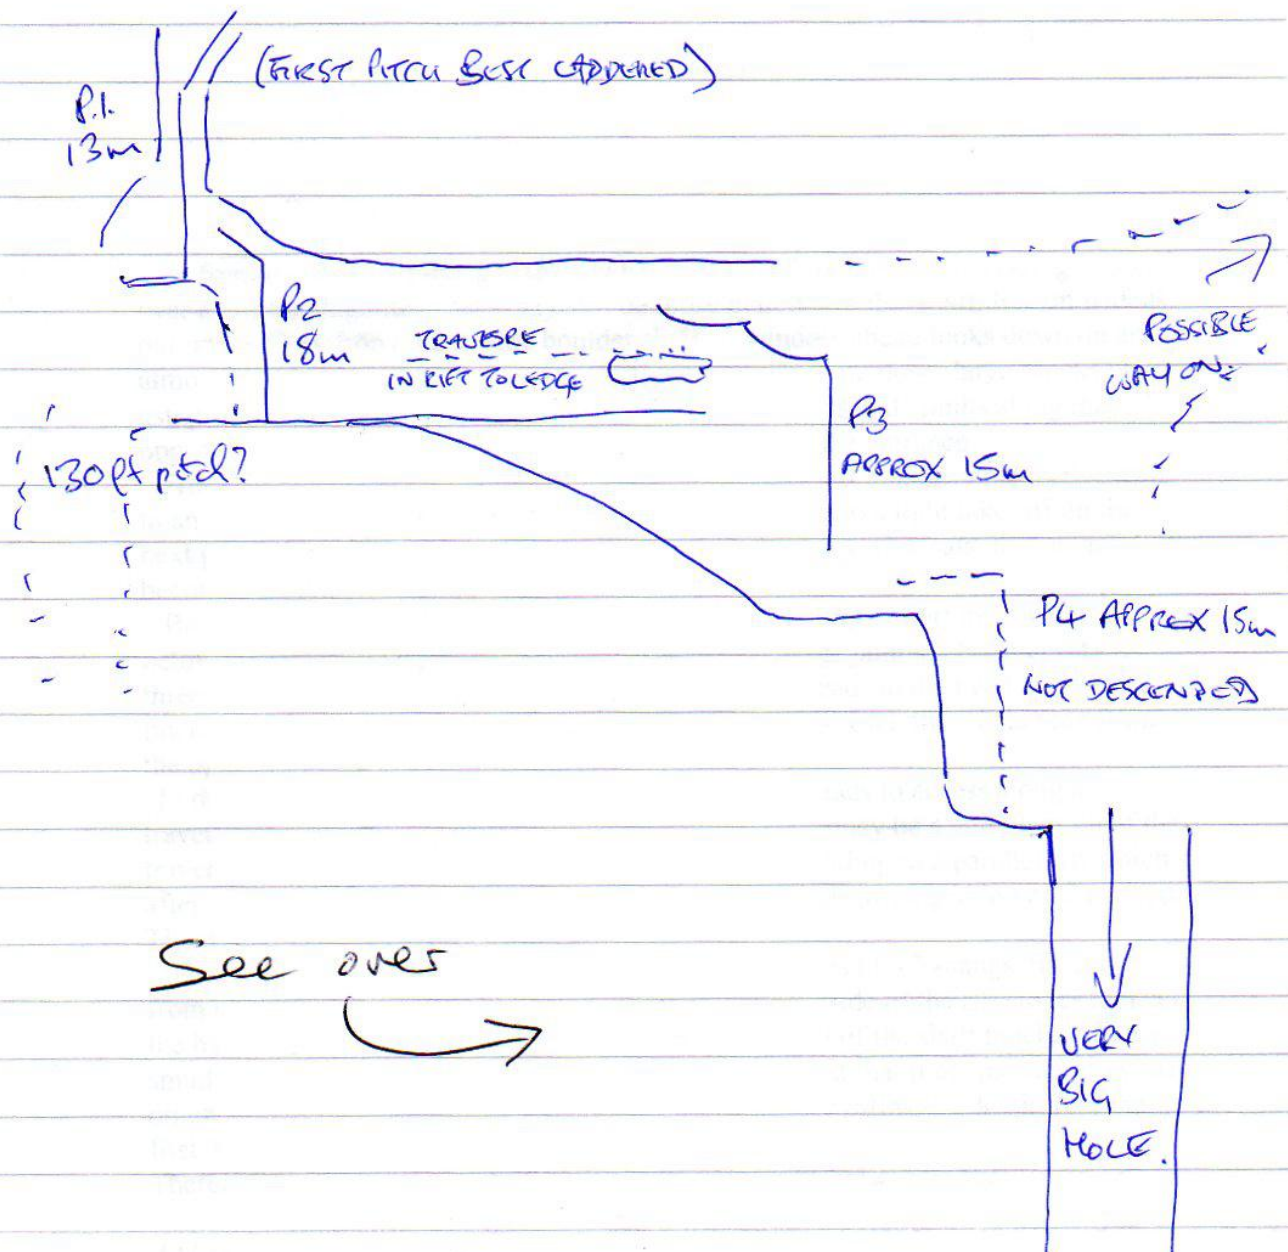 (FIRST PITCH BEST LADDERED)
P.1.
13m
P2
18m
TRAVERSE
IN RIFT TO LEDGE
POSSIBLE
WAY ON?
P3
APPROX 15m
130ft pitch?
P4 APPROX 15m
NOT DESCENDED
See over
VERY
BIG
HOLE.